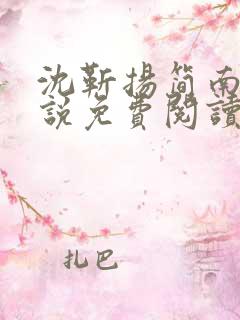 沈靳揚簡南
說免費閱讀
扎巴